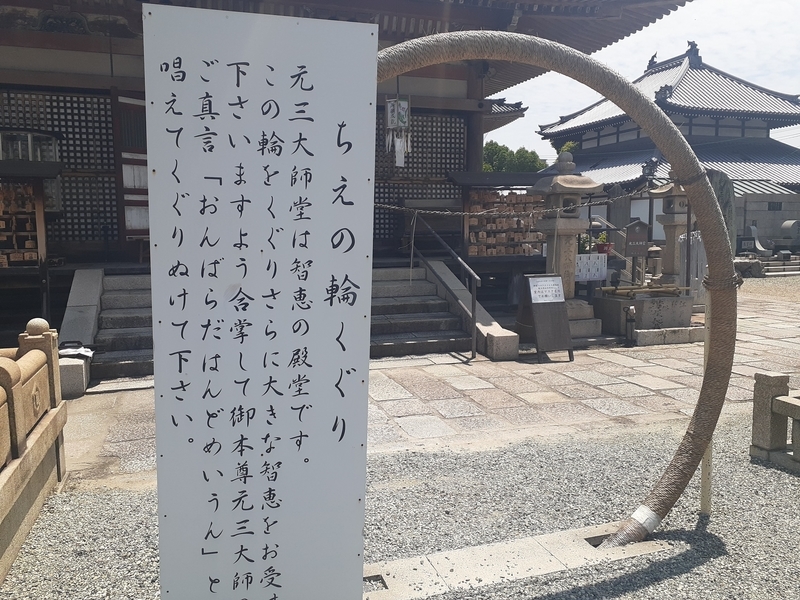 ちえの輪くぐり
元三大師堂は智恵の殿堂です。
この輪をくぐりさらに大きな智恵をお受
下さいますよう合掌して御本尊元三大師
ご真言「おんばらだはんどめいうん」と
唱えてくぐりぬけて下さい。